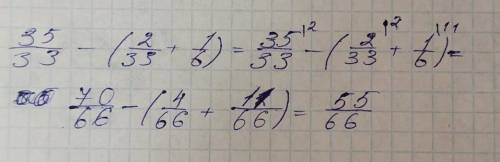 35/33 - (2/33 + 1/6) = 35/33|² - (2/33|² + 1/6|¹¹) =
70/66 - (4/66 + 11/66) = 55/66